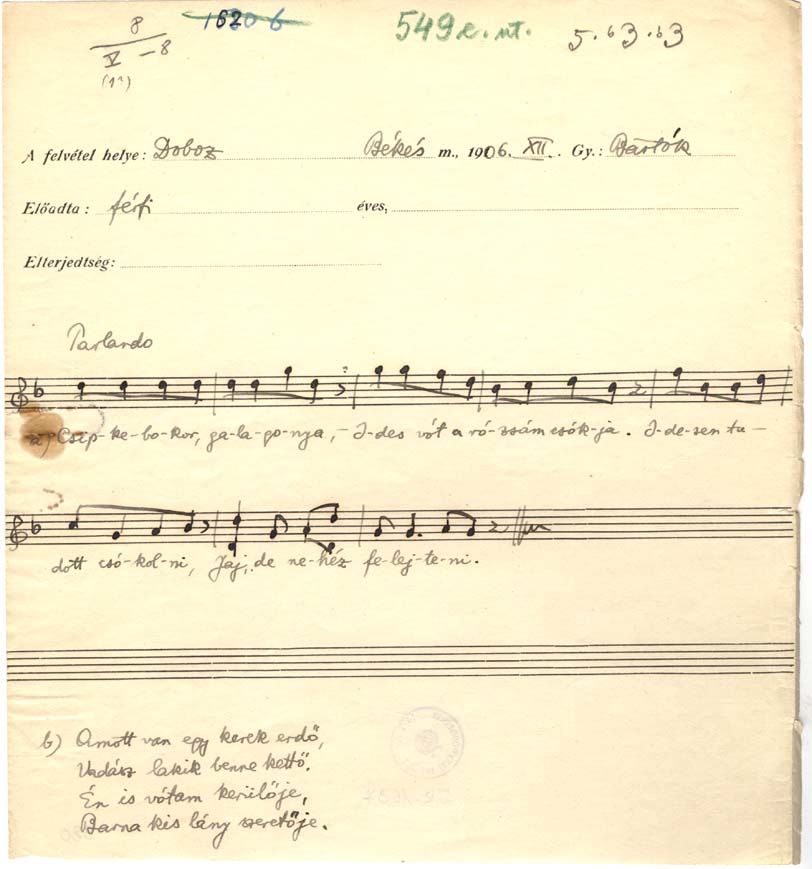 8
V – 8
(12)
1620 b
549 e. nt.
5. b3. b3
A felvétel helye: Doboz Békés m., 1906. XII. Gy.: Bartók
Előadta: férfi éves,
Elterjedtség:
Parlando
a) Csip-ke-bo-kor, ga-la-go-nya, – I-des vót a ró-zsám csók-ja. I-de-sen tu –
dott csó-kol-ni, Jaj, de ne-héz fe-lej-te-ni.
b) Amott van egy kerek erdő,
Vadász lakik benne kettő.
Én is vótam kerülője,
Barna kis lány szeretője.